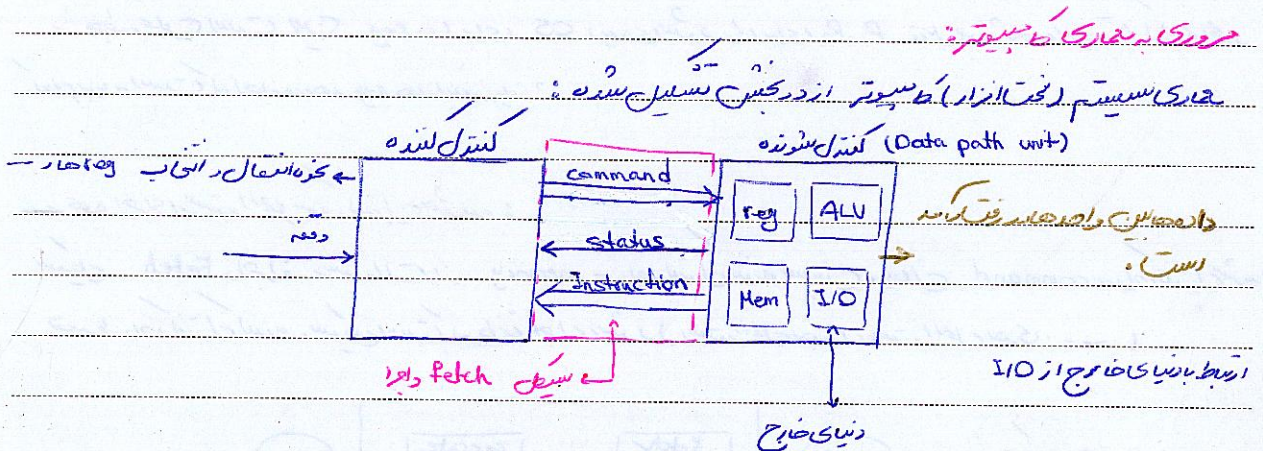 مروری به معماری کامپیوتر:
معماری سیستم (سخت افزار) کامپیوتر از دو بخش تشکیل شده:
کنترل شونده (Data path unit)
کنترل کننده
نحوه انتقال و انتخاب regها
وقفه
command
status
Instruction
reg
ALU
Mem
I/O
داده ها بین واحدها در رفت و آمد
است.
سیکل fetch و اجرا
ارتباط با دنیای خارج از I/O
دنیای خارج